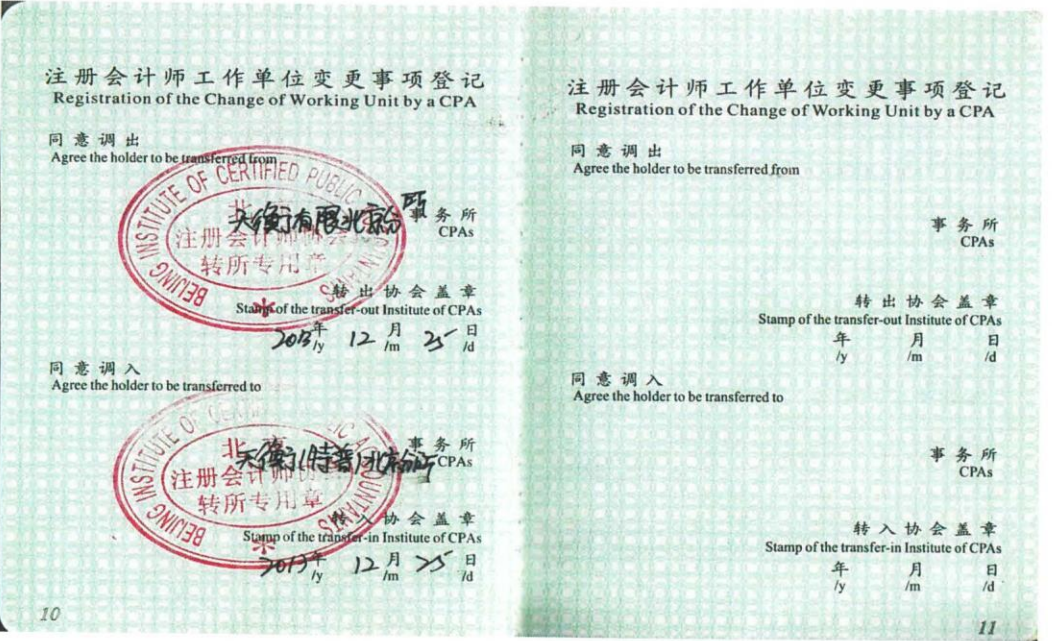 注册会计师工作单位变更事项登记
Registration of the Change of Working Unit by a CPA
同意调出
Agree the holder to be transferred from
BEIJING INSTITUTE OF CERTIFIED PUBLIC ACCOUNTANTS
北京
注册会计师协会
转所专用章
天衡有限北京分所
事务所
CPAs
转出协会盖章
Stamp of the transfer-out Institute of CPAs
2013年 12月 25日
/y /m /d
同意调入
Agree the holder to be transferred to
BEIJING INSTITUTE OF CERTIFIED PUBLIC ACCOUNTANTS
北京
注册会计师协会
转所专用章
天衡(特普)北京分所
事务所
CPAs
转入协会盖章
Stamp of the transfer-in Institute of CPAs
2013年 12月 25日
/y /m /d
10
注册会计师工作单位变更事项登记
Registration of the Change of Working Unit by a CPA
同意调出
Agree the holder to be transferred from
事务所
CPAs
转出协会盖章
Stamp of the transfer-out Institute of CPAs
年 月 日
/y /m /d
同意调入
Agree the holder to be transferred to
事务所
CPAs
转入协会盖章
Stamp of the transfer-in Institute of CPAs
年 月 日
/y /m /d
11